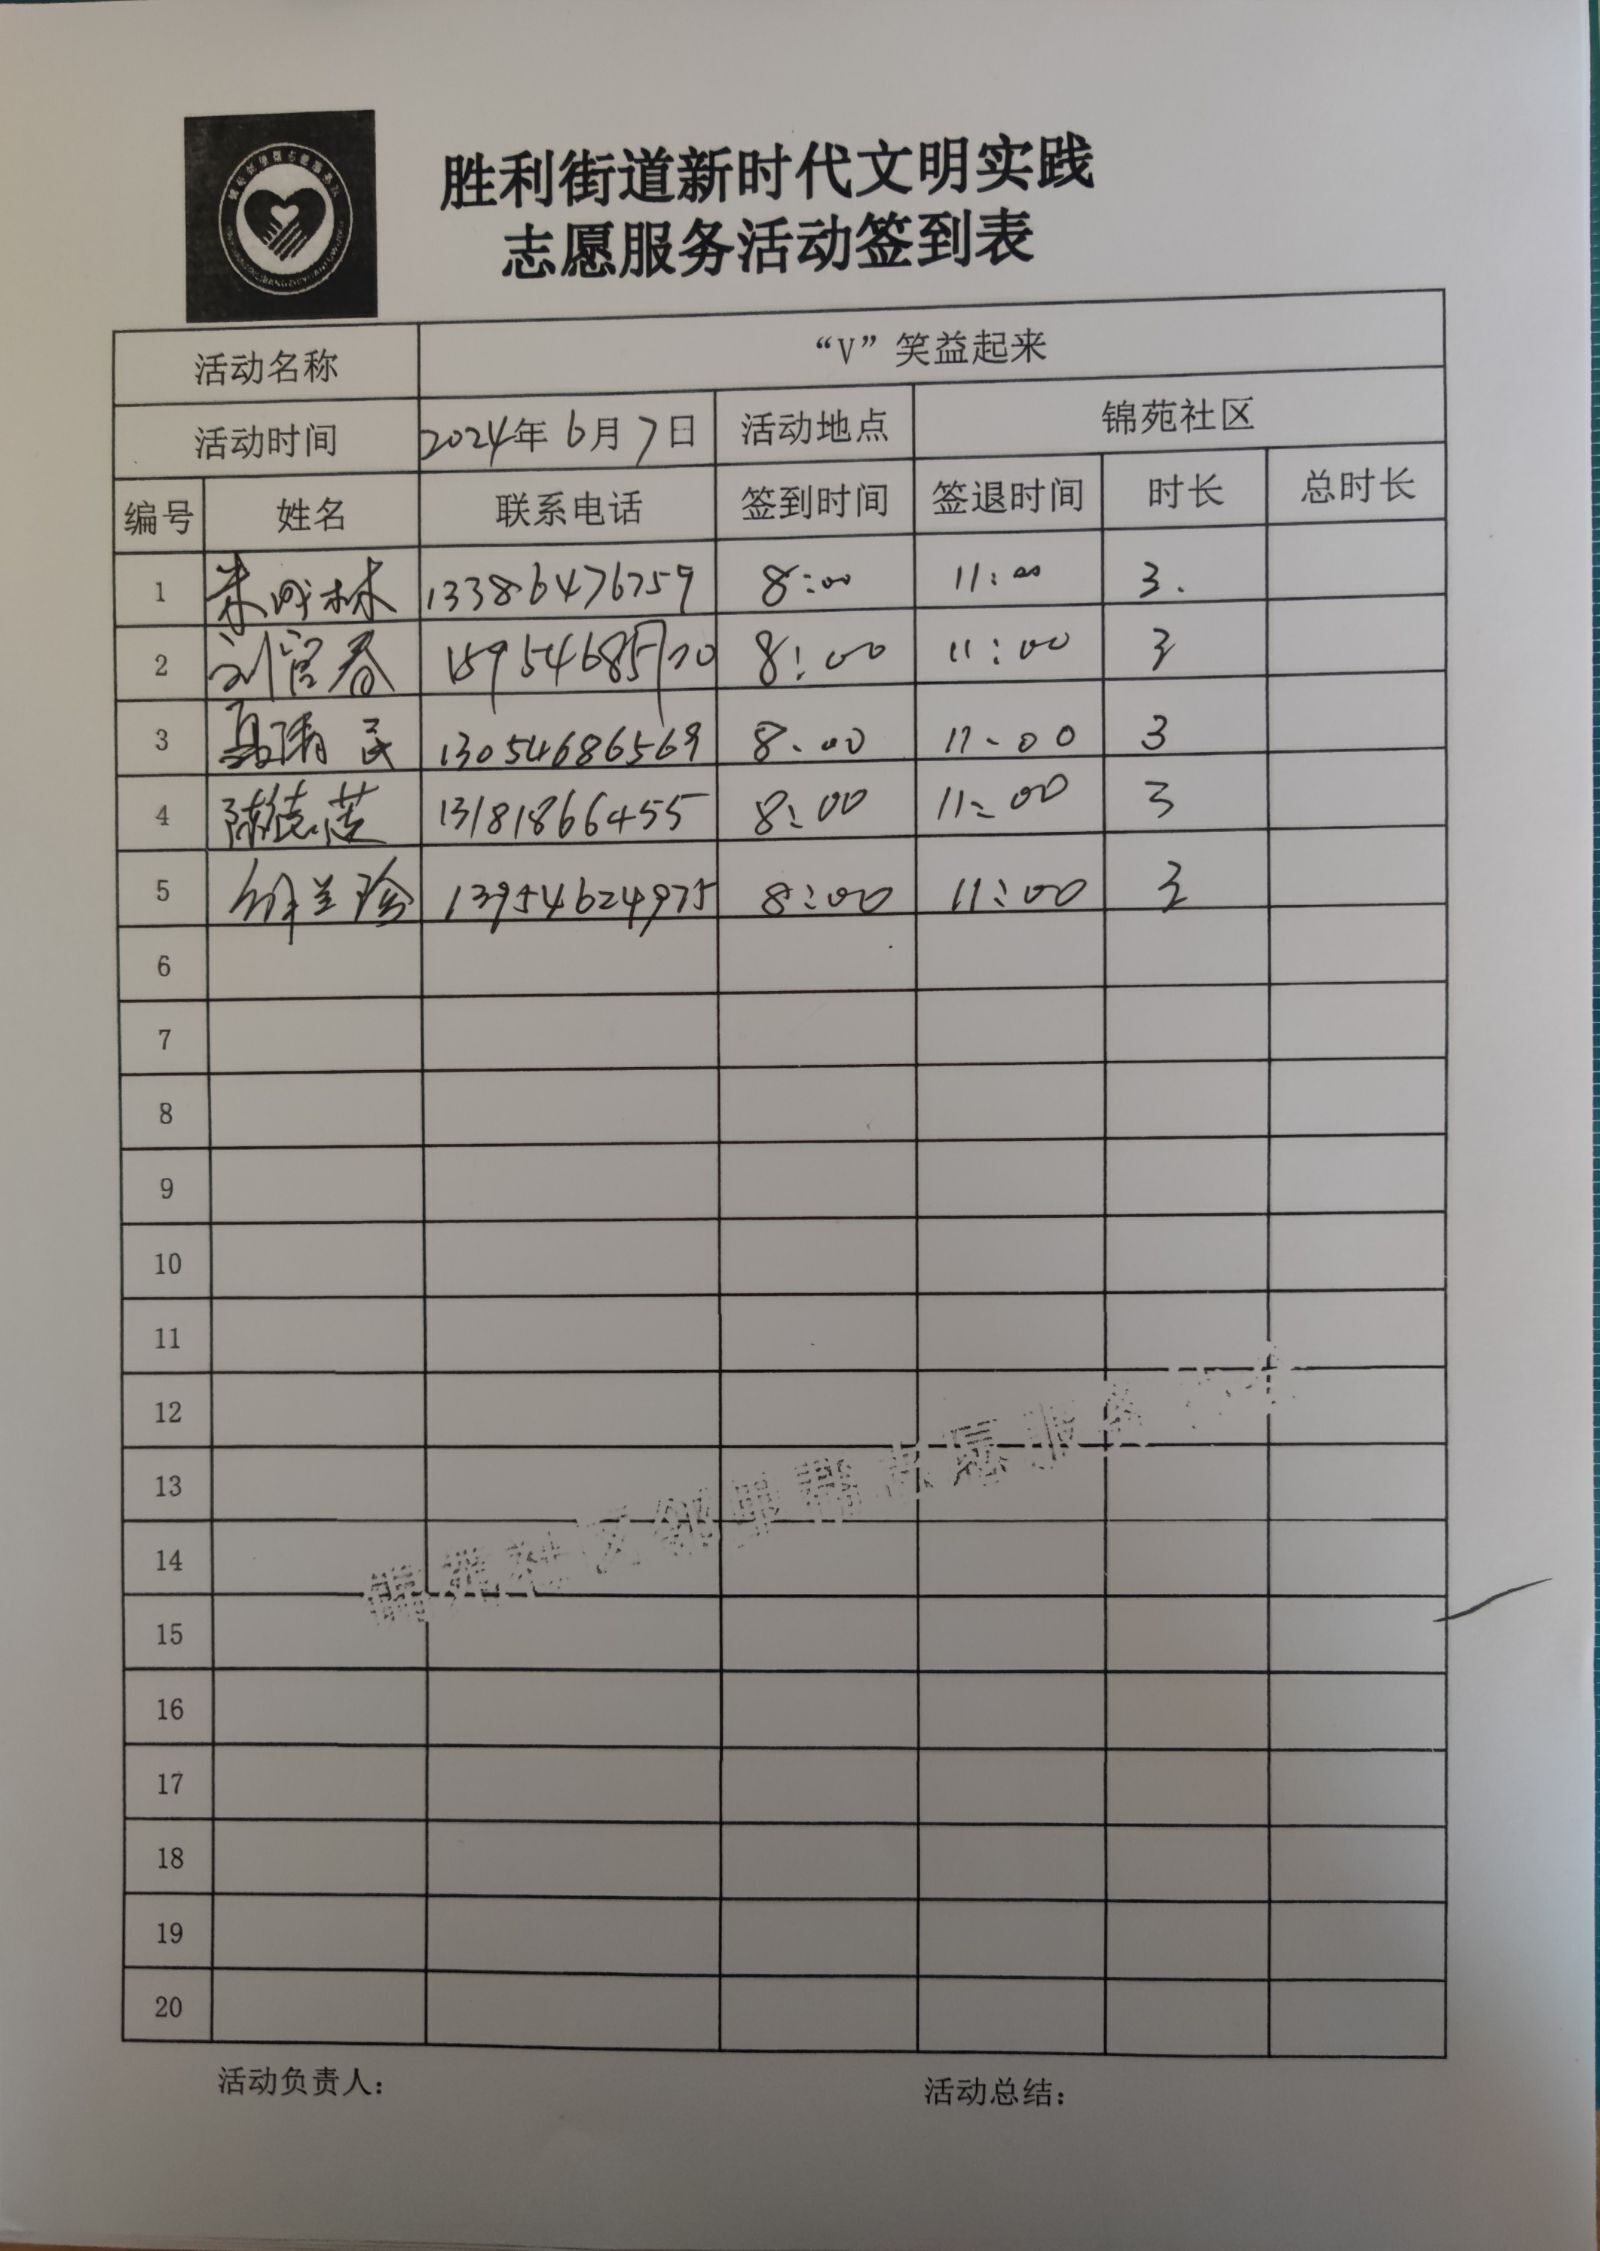 胜利街道新时代文明实践
志愿服务活动签到表
活动名称 “V”笑益起来
活动时间 2024年 6月 7日 活动地点 锦苑社区
编号 姓名 联系电话 签到时间 签退时间 时长 总时长
1 13386476759 8:00 11:00 3.
2 刘官春 8:00 11:00 3
3 13054686569 8:00 11:00 3
4 陈德英 13181866455 8:00 11:00 3
5 13954624975 8:00 11:00 3
6
7
8
9
10
11
12
13
14
15
16
17
18
19
20
锦苑社区邻里帮志愿服务
活动负责人: 活动总结: